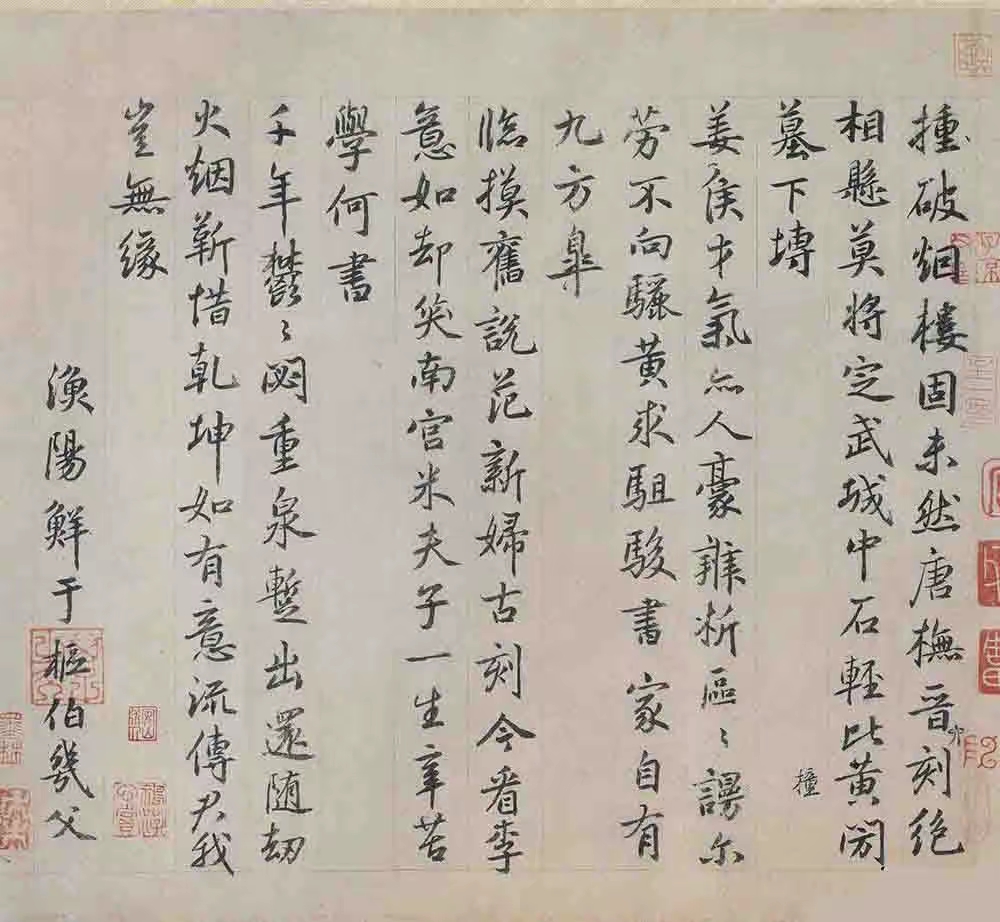 揰破烟樓固未然唐橅音刻絕
相懸莫將定武城中石輕比黃閍
墓下塼
撞
姜侯才氣亦人豪辨析區〻謾尔
勞不向驪黃求駔駿書家自有
九方臯
臨摸舊說范新婦古刻今看李
意如却笑南宮米夫子一生辛苦
學何書
千年鬱〻悶重泉暫出還随劫
火烟靳惜乾坤如有意流傳君我
豈無緣
漁陽鮮于樞伯幾父